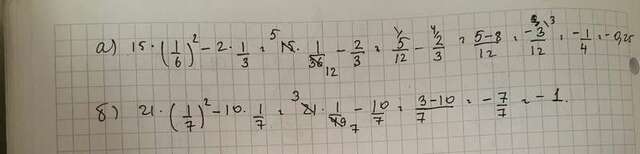 а) 15 · (1/6)² − 2 · 1/3 = ⁵1̶5̶ · 1/3̶6̶₁₂ − 2/3 = ¹⁾5/12 − ⁴⁾2/3 = 5−8/12 = −3/12 = −1/4 = −0,25
б) 21 · (1/7)² − 10 · 1/7 = ³2̶1̶ · 1/4̶9̶₇ − 10/7 = 3−10/7 = −7/7 = −1.